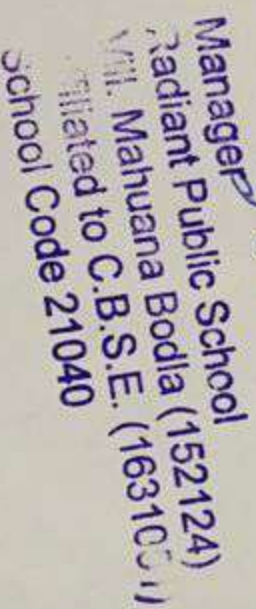 Manager
Radiant Public School
Vill. Mahuana Bodla (152124)
Affiliated to C.B.S.E.
School Code 21040